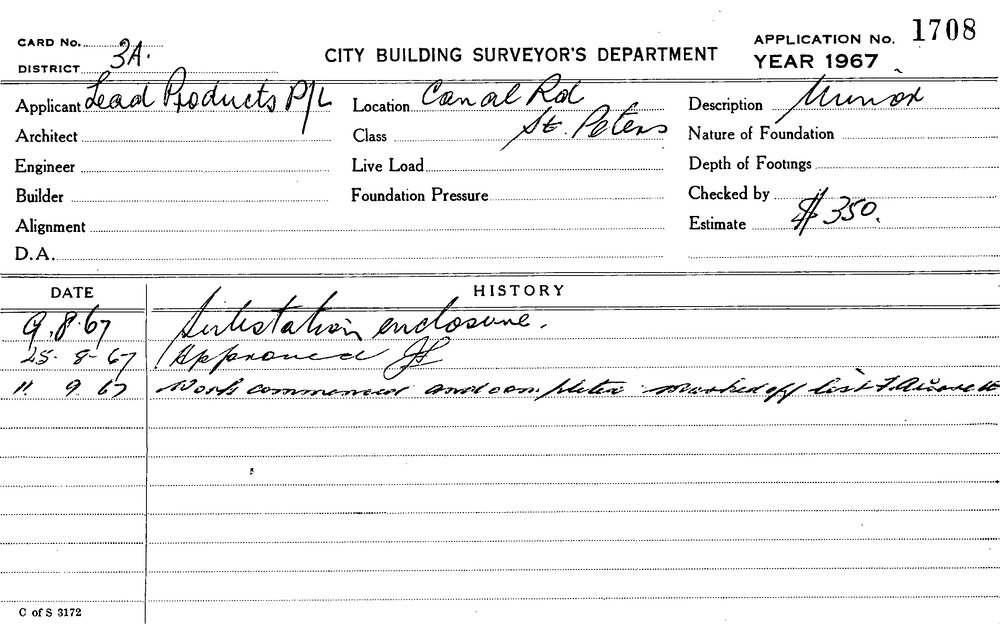 CARD No.
DISTRICT 3A.
CITY BUILDING SURVEYOR'S DEPARTMENT
APPLICATION No. 1708
YEAR 1967
Applicant Lead Products P/L
Location Canal Rd
St. Peters
Description Minor
Architect
Class
Nature of Foundation
Engineer
Live Load
Depth of Footings
Builder
Foundation Pressure
Checked by
Alignment
Estimate $350.
D.A.
DATE
HISTORY
9.8.67 Substation enclosure.
25-8-67 Approved
11 9 67 Work commenced and completed marked off list
C of S 3172